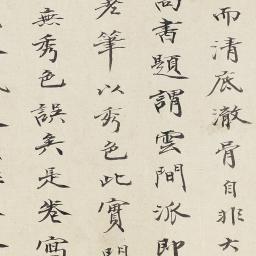 而清底澈骨自非大
尚書題謂雲間派即
老筆以秀色此實
無秀色誤矣是卷寫